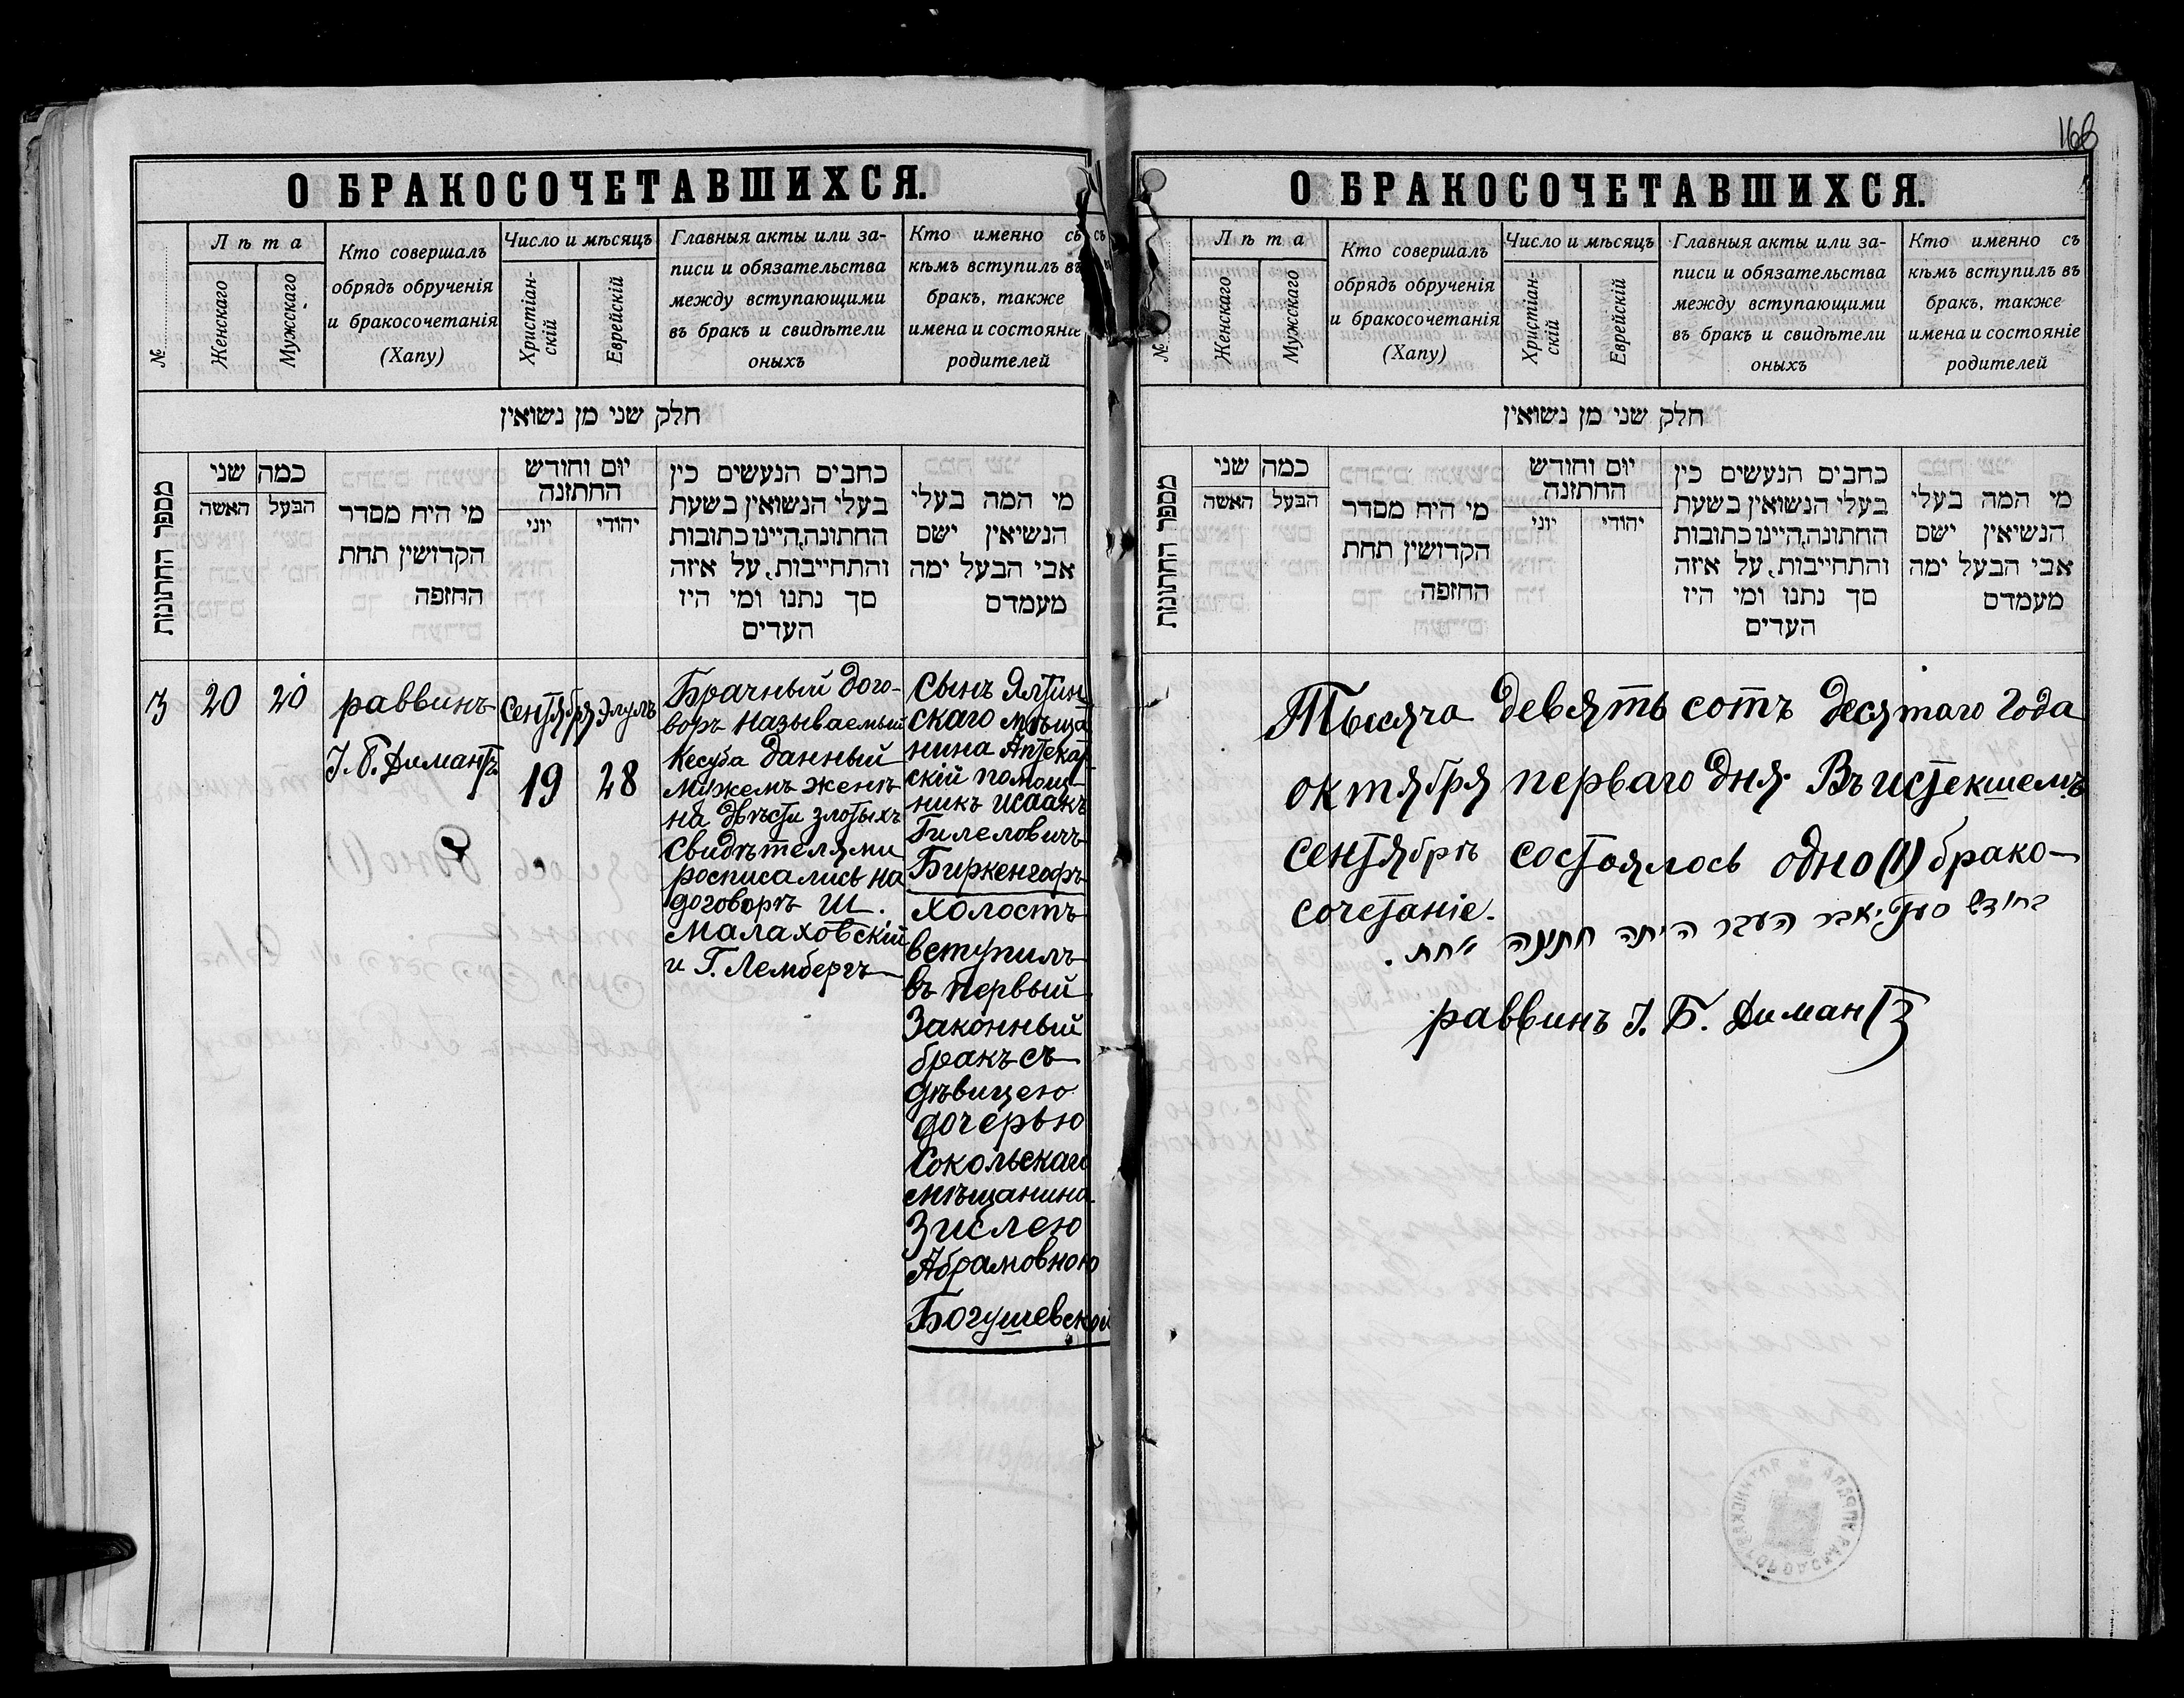 168
О БРАКОСОЧЕТАВШИХСЯ.
№
Лѣта
Женскаго
Мужскаго
Кто совершалъ
обрядъ обрученія
и бракосочетанія
(Хапу)
Число и мѣсяцъ
Христіан-
скій
Еврейскій
Главныя акты или за-
писи и обязательства
между вступающими
въ бракъ и свидѣтели
оныхъ
Кто именно съ
кѣмъ вступилъ въ
бракъ, также
имена и состояніе
родителей
חלק שני מן נשואין
מספר החתונות
כמה שני
האשה
הבעל
מי היח מסדר
הקדושין תחת
החזפה
יום וחודש
החתזנה
יוני
יהודי
כחבים הנעשים כין
בעלי הנשואין בשעת
החתונה,היינו כתובות
והתחייבות, על איזה
סך נתנו ומי היז
העדים
מי המה בעלי
הנשיאין ישם
אבי הבעל ימה
מעמדם
3
20
20
раввинъ
І. Б. Димантъ
сентября
19
Элулъ
28
Брачный дого-
воръ называемый
Кесуба данный
мужемъ женѣ
на двѣсти злотыхъ
Свидѣтелями
росписались на
договорѣ Ш.
Малаховскій
и Г. Лембергъ
Сынъ Ялтин
скаго мѣща
нина Аптекар
скій помощ-
никъ Исаакъ
Гилеловичъ
Биркенгофъ
холостъ
вступилъ
въ первый
Законный
бракъ съ
дѣвицею
дочерью
Сокольскаго
мѣщанина
Зислею
Абрамовною
Богушевской
О БРАКОСОЧЕТАВШИХСЯ.
№
Лѣта
Женскаго
Мужскаго
Кто совершалъ
обрядъ обрученія
и бракосочетанія
(Хапу)
Число и мѣсяцъ
Христіан-
скій
Еврейскій
Главныя акты или за-
писи и обязательства
между вступающими
въ бракъ и свидѣтели
оныхъ
Кто именно съ
кѣмъ вступилъ въ
бракъ, также
имена и состояніе
родителей
חלק שני מן נשואין
מספר החתונות
כמה שני
האשה
הבעל
מי היח מסדר
הקדושין תחת
החזפה
יום וחודש
החתזנה
יוני
יהודי
כחבים הנעשים כין
בעלי הנשואין בשעת
החתונה,היינו כתובות
והתחייבות, על איזה
סך נתנו ומי היז
העדים
מי המה בעלי
הנשיאין ישם
אבי הבעל ימה
מעמדם
Тысяча девять сотъ десятаго года
октября перваго дня. Въ истекшемъ
сентябрѣ состоялось одно (1) брако-
сочетаніе.
בחודש העבר היתה חתונה אחת.
раввинъ І. Б. Димантъ